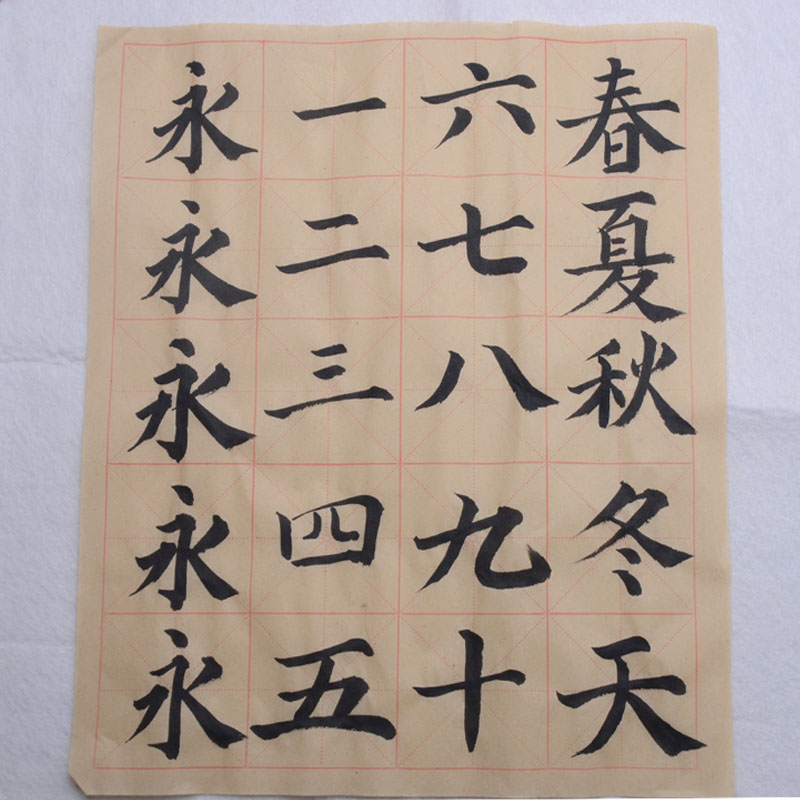 永永永永永
一二三四五
六七八九十
春夏秋冬天